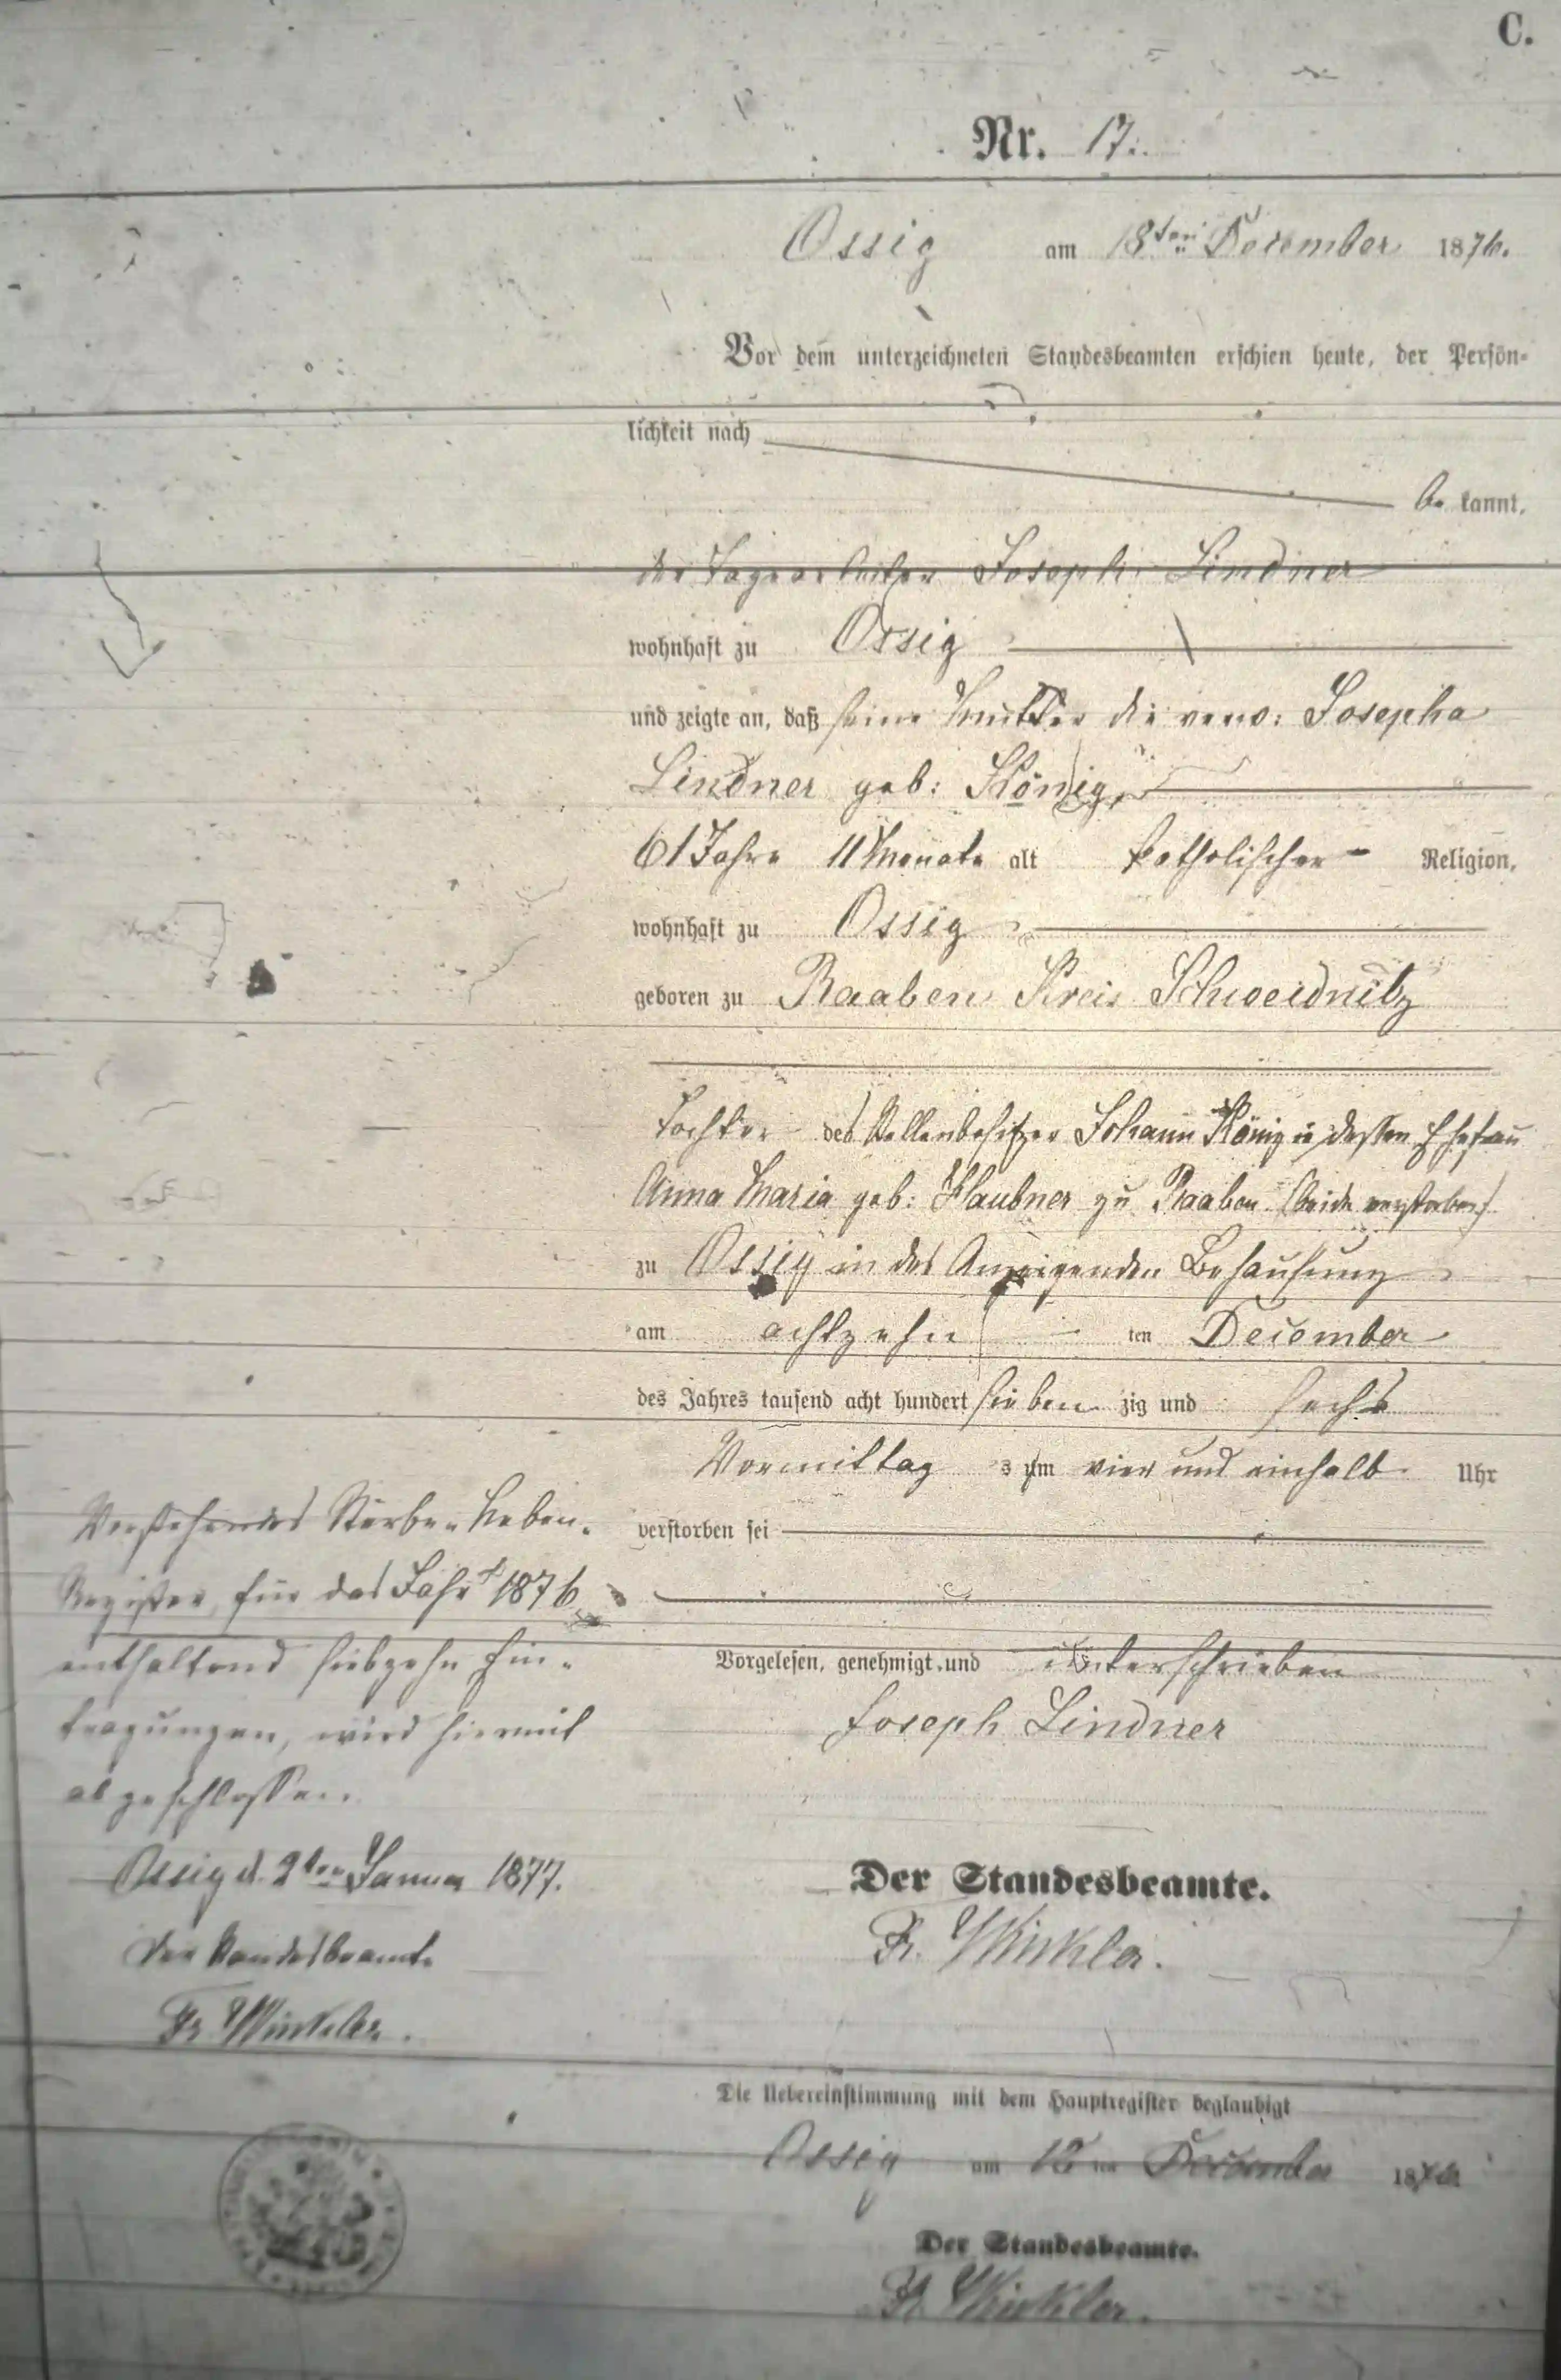 C.
Nr. 17.
Ossig am 18ten December 1876.
Vor dem unterzeichneten Standesbeamten erschien heute, der Persön-
lichkeit nach
be kannt,
der Tagearbeiter Joseph Lindner
wohnhaft zu Ossig
und zeigte an, daß seine Mutter die verw: Josepha
Lindner geb: König,
61 Jahre 11 Monate alt katholischer Religion,
wohnhaft zu Ossig
geboren zu Raaben Kreis Schweidnitz
Tochter des Stellenbesitzer Johann König u dessen Ehefrau
Anna Maria geb: Klaubner zu Raaben (beide verstorben)
zu Ossig in des Anzeigenden Behausung
am achtzehn ten December
des Jahres tausend acht hundert sieben zig und sechs
Vormittag s um vier und einhalb Uhr
verstorben sei
Vorgelesen, genehmigt und unterschrieben
Joseph Lindner
Der Standesbeamte.
Fr. Winkler.
Vorstehendes Sterbe-Neben-
Register für das Jahr 1876
enthaltend siebzehn Ein-
tragungen, wird hiermit
abgeschlossen.
Ossig d. 2ten Januar 1877.
Der Standesbeamte
Fr. Winkler.
Die Uebereinstimmung mit dem Hauptregister beglaubigt
Ossig am 18 ten December 1876
Der Standesbeamte.
Fr. Winkler.